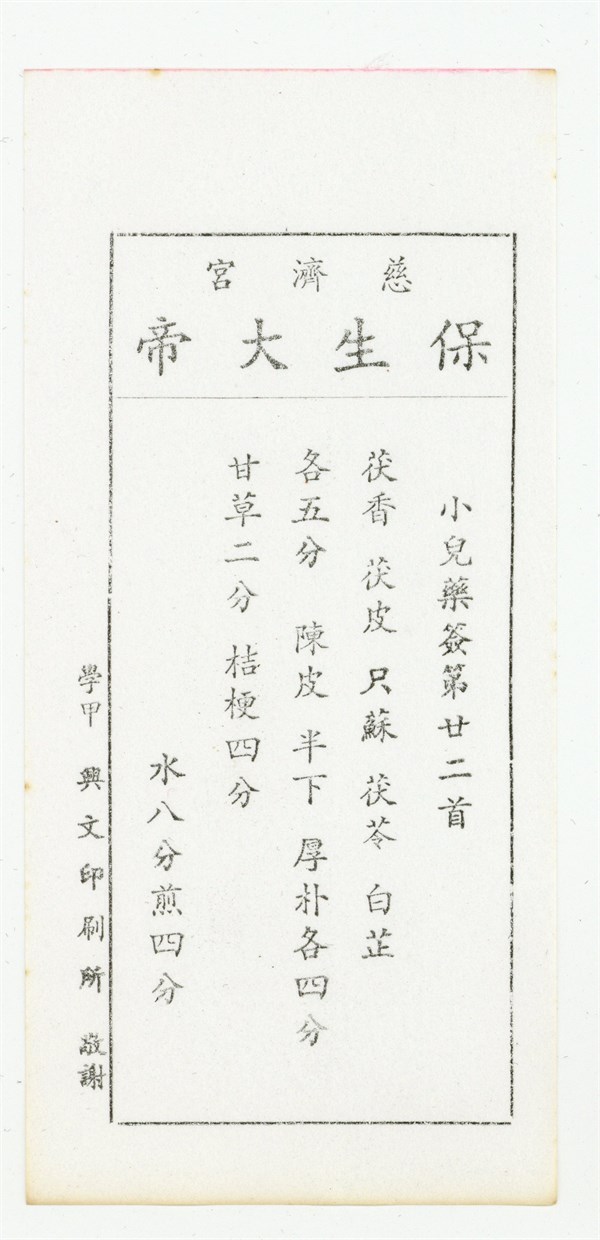 慈濟宮
保生大帝
小兒藥簽第廿二首
茯香 茯皮 只蘇 茯苓 白芷
各五分 陳皮 半下 厚朴各四分
甘草二分 桔梗四分
水八分煎四分
學甲 興文印刷所 敬謝